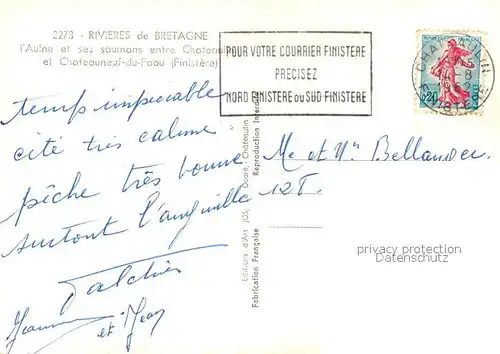 3273 - RIVIERES de BRETAGNE
l'Aulne et ses saumons entre Chateaulin
et Chateauneuf-du-Faou (Finistère)
POUR VOTRE COURRIER FINISTERE
PRECISEZ
NORD FINISTERE OU SUD FINISTERE
REPUBLIQUE FRANÇAISE
0,20
CHATEAULIN
8
1962
FINISTERE
temps impeccable
cité très calme
pêche très bonne
surtout l'anguille
et Jean
Me et Mr Bellanger
12 T.
Editions d'Art JOS, Doaré, Chateaulin
Fabrication Française
Reproduction Interdite
privacy protection
Datenschutz